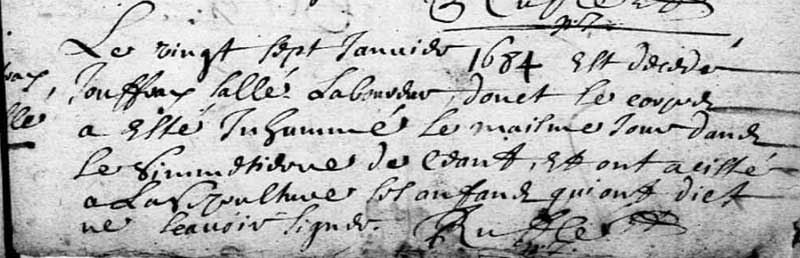 Le vingt sept Janvier 1684 Est decedé
Jouffray Sallé Laboureur, donct le corps
a Esté Inhummé le maisme Jour dans
le Simmetierre de ceant, Et ont acisté
a La Sepulture ses anfans qui ont dict
ne scavoir signer.